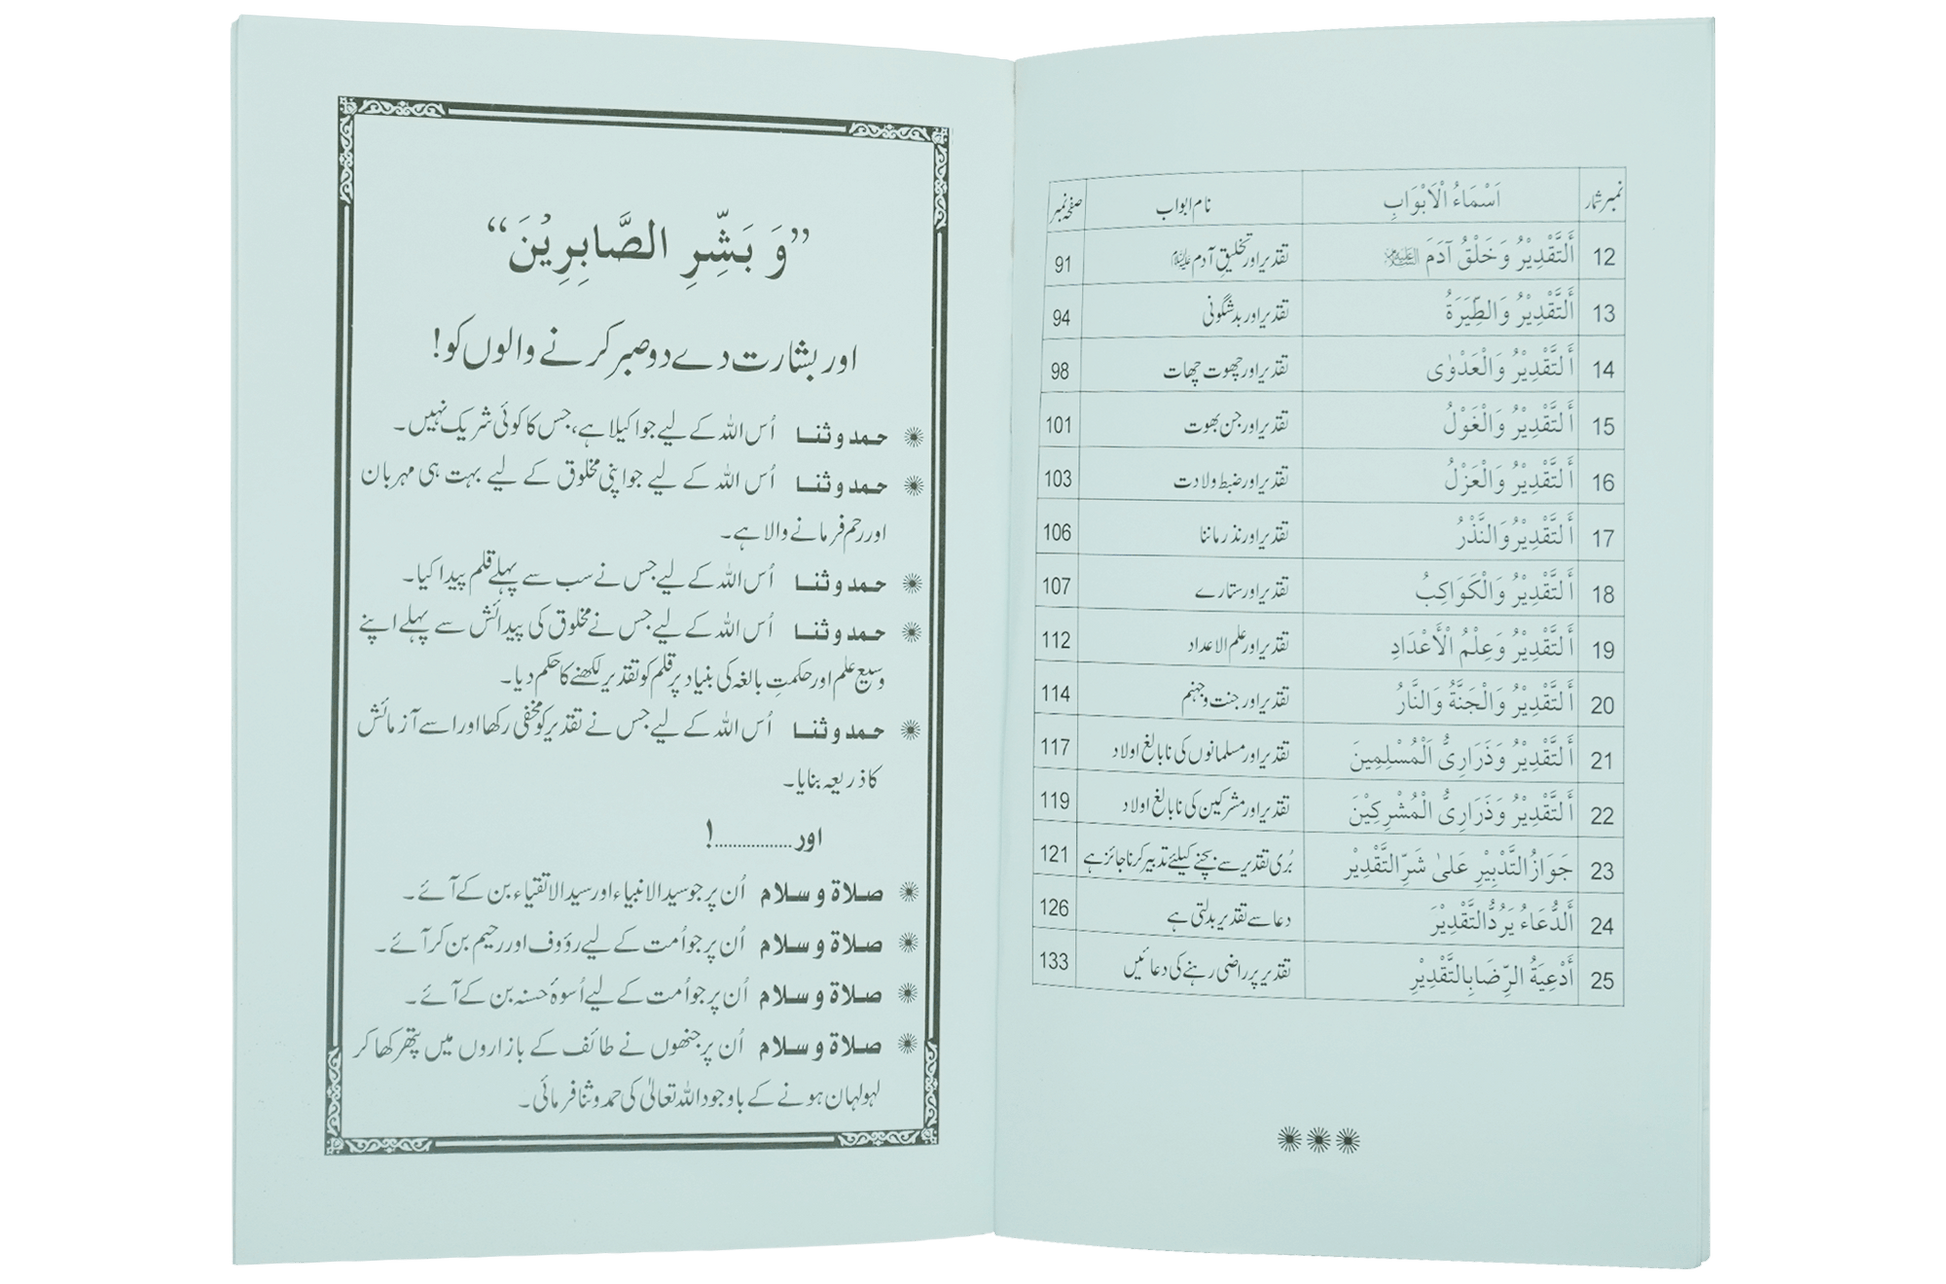 نمبر شمار اَسْمَاءُ الْاَبْوَابِ نام ابواب صفحہ نمبر
12 أَلتَّقْدِيْرُ وَخَلْقُ آدَمَ عَلَيْهِ السَّلَام تقدیر اور تخلیقِ آدم علیہ السلام 91
13 أَلتَّقْدِيْرُ وَالطِّيَرَةُ تقدیر اور بدشگونی 94
14 أَلتَّقْدِيْرُ وَالْعَدْوٰى تقدیر اور چھوت چھات 98
15 أَلتَّقْدِيْرُ وَالْغَوْلُ تقدیر اور جن بھوت 101
16 أَلتَّقْدِيْرُ وَالْعَزْلُ تقدیر اور ضبط ولادت 103
17 أَلتَّقْدِيْرُ وَالنَّذْرُ تقدیر اور نذر ماننا 106
18 أَلتَّقْدِيْرُ وَالْكَوَاكِبُ تقدیر اور ستارے 107
19 أَلتَّقْدِيْرُ وَعِلْمُ الْأَعْدَادِ تقدیر اور علم الاعداد 112
20 أَلتَّقْدِيْرُ وَالْجَنَّةُ وَالنَّارُ تقدیر اور جنت و جہنم 114
21 أَلتَّقْدِيْرُ وَذَرَارِىُّ اَلْمُسْلِمِينَ تقدیر اور مسلمانوں کی نابالغ اولاد 117
22 أَلتَّقْدِيْرُ وَذَرَارِىُّ الْمُشْرِكِيْنَ تقدیر اور مشرکین کی نابالغ اولاد 119
23 جَوَازُ التَّدْبِيْرِ عَلىٰ شَرِّ التَّقْدِيْر بُری تقدیر سے بچنے کیلئے تدبیر کرنا جائز ہے 121
24 أَلدُّعَاءُ يَرُدُّ التَّقْدِيْرَ دعا سے تقدیر بدلتی ہے 126
25 أَدْعِيَةُ الرِّضَا بِالتَّقْدِيْرِ تقدیر پر راضی رہنے کی دعائیں 133
”وَ بَشِّرِ الصَّابِرِيْنَ“
اور بشارت دے دو صبر کرنے والوں کو!
حمد و ثنا اُس اللہ کے لیے جو اکیلا ہے، جس کا کوئی شریک نہیں۔
حمد و ثنا اُس اللہ کے لیے جو اپنی مخلوق کے لیے بہت ہی مہربان
اور رحم فرمانے والا ہے۔
حمد و ثنا اُس اللہ کے لیے جس نے سب سے پہلے قلم پیدا کیا۔
حمد و ثنا اُس اللہ کے لیے جس نے مخلوق کی پیدائش سے پہلے اپنے
وسیع علم اور حکمتِ بالغہ کی بنیاد پر قلم کو تقدیر لکھنے کا حکم دیا۔
حمد و ثنا اُس اللہ کے لیے جس نے تقدیر کو مخفی رکھا اور اسے آزمائش
کا ذریعہ بنایا۔
اور ................!
صلاة و سلام اُن پر جو سید الانبیاء اور سید الاتقیاء بن کے آئے۔
صلاة و سلام اُن پر جو اُمت کے لیے رؤوف اور رحیم بن کر آئے۔
صلاة و سلام اُن پر جو اُمت کے لیے اُسوۂ حسنہ بن کے آئے۔
صلاة و سلام اُن پر جنھوں نے طائف کے بازاروں میں پتھر کھا کر
لہولہان ہونے کے باوجود اللہ تعالیٰ کی حمد و ثنا فرمائی۔